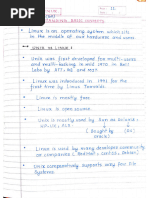 Linux is an operating system which sits
in the middle of our hardware and users
UNIX vs LINUX :
Unix was first developed for multi-users
and multi-tasking in mid 1970 in Bell
Labs by AT&T, GE and MIT
Linux was introduced in 1991 for the
first time by Linus Torvalds
Linux is mostly free
Linux is open source
Unix is mostly used by Sun as Solaris,
HP-UX, AIX,
Linux is used by many developer community
or companies (Redhat, CentOS, Debian
Unix comparatively supports very few File
Systems